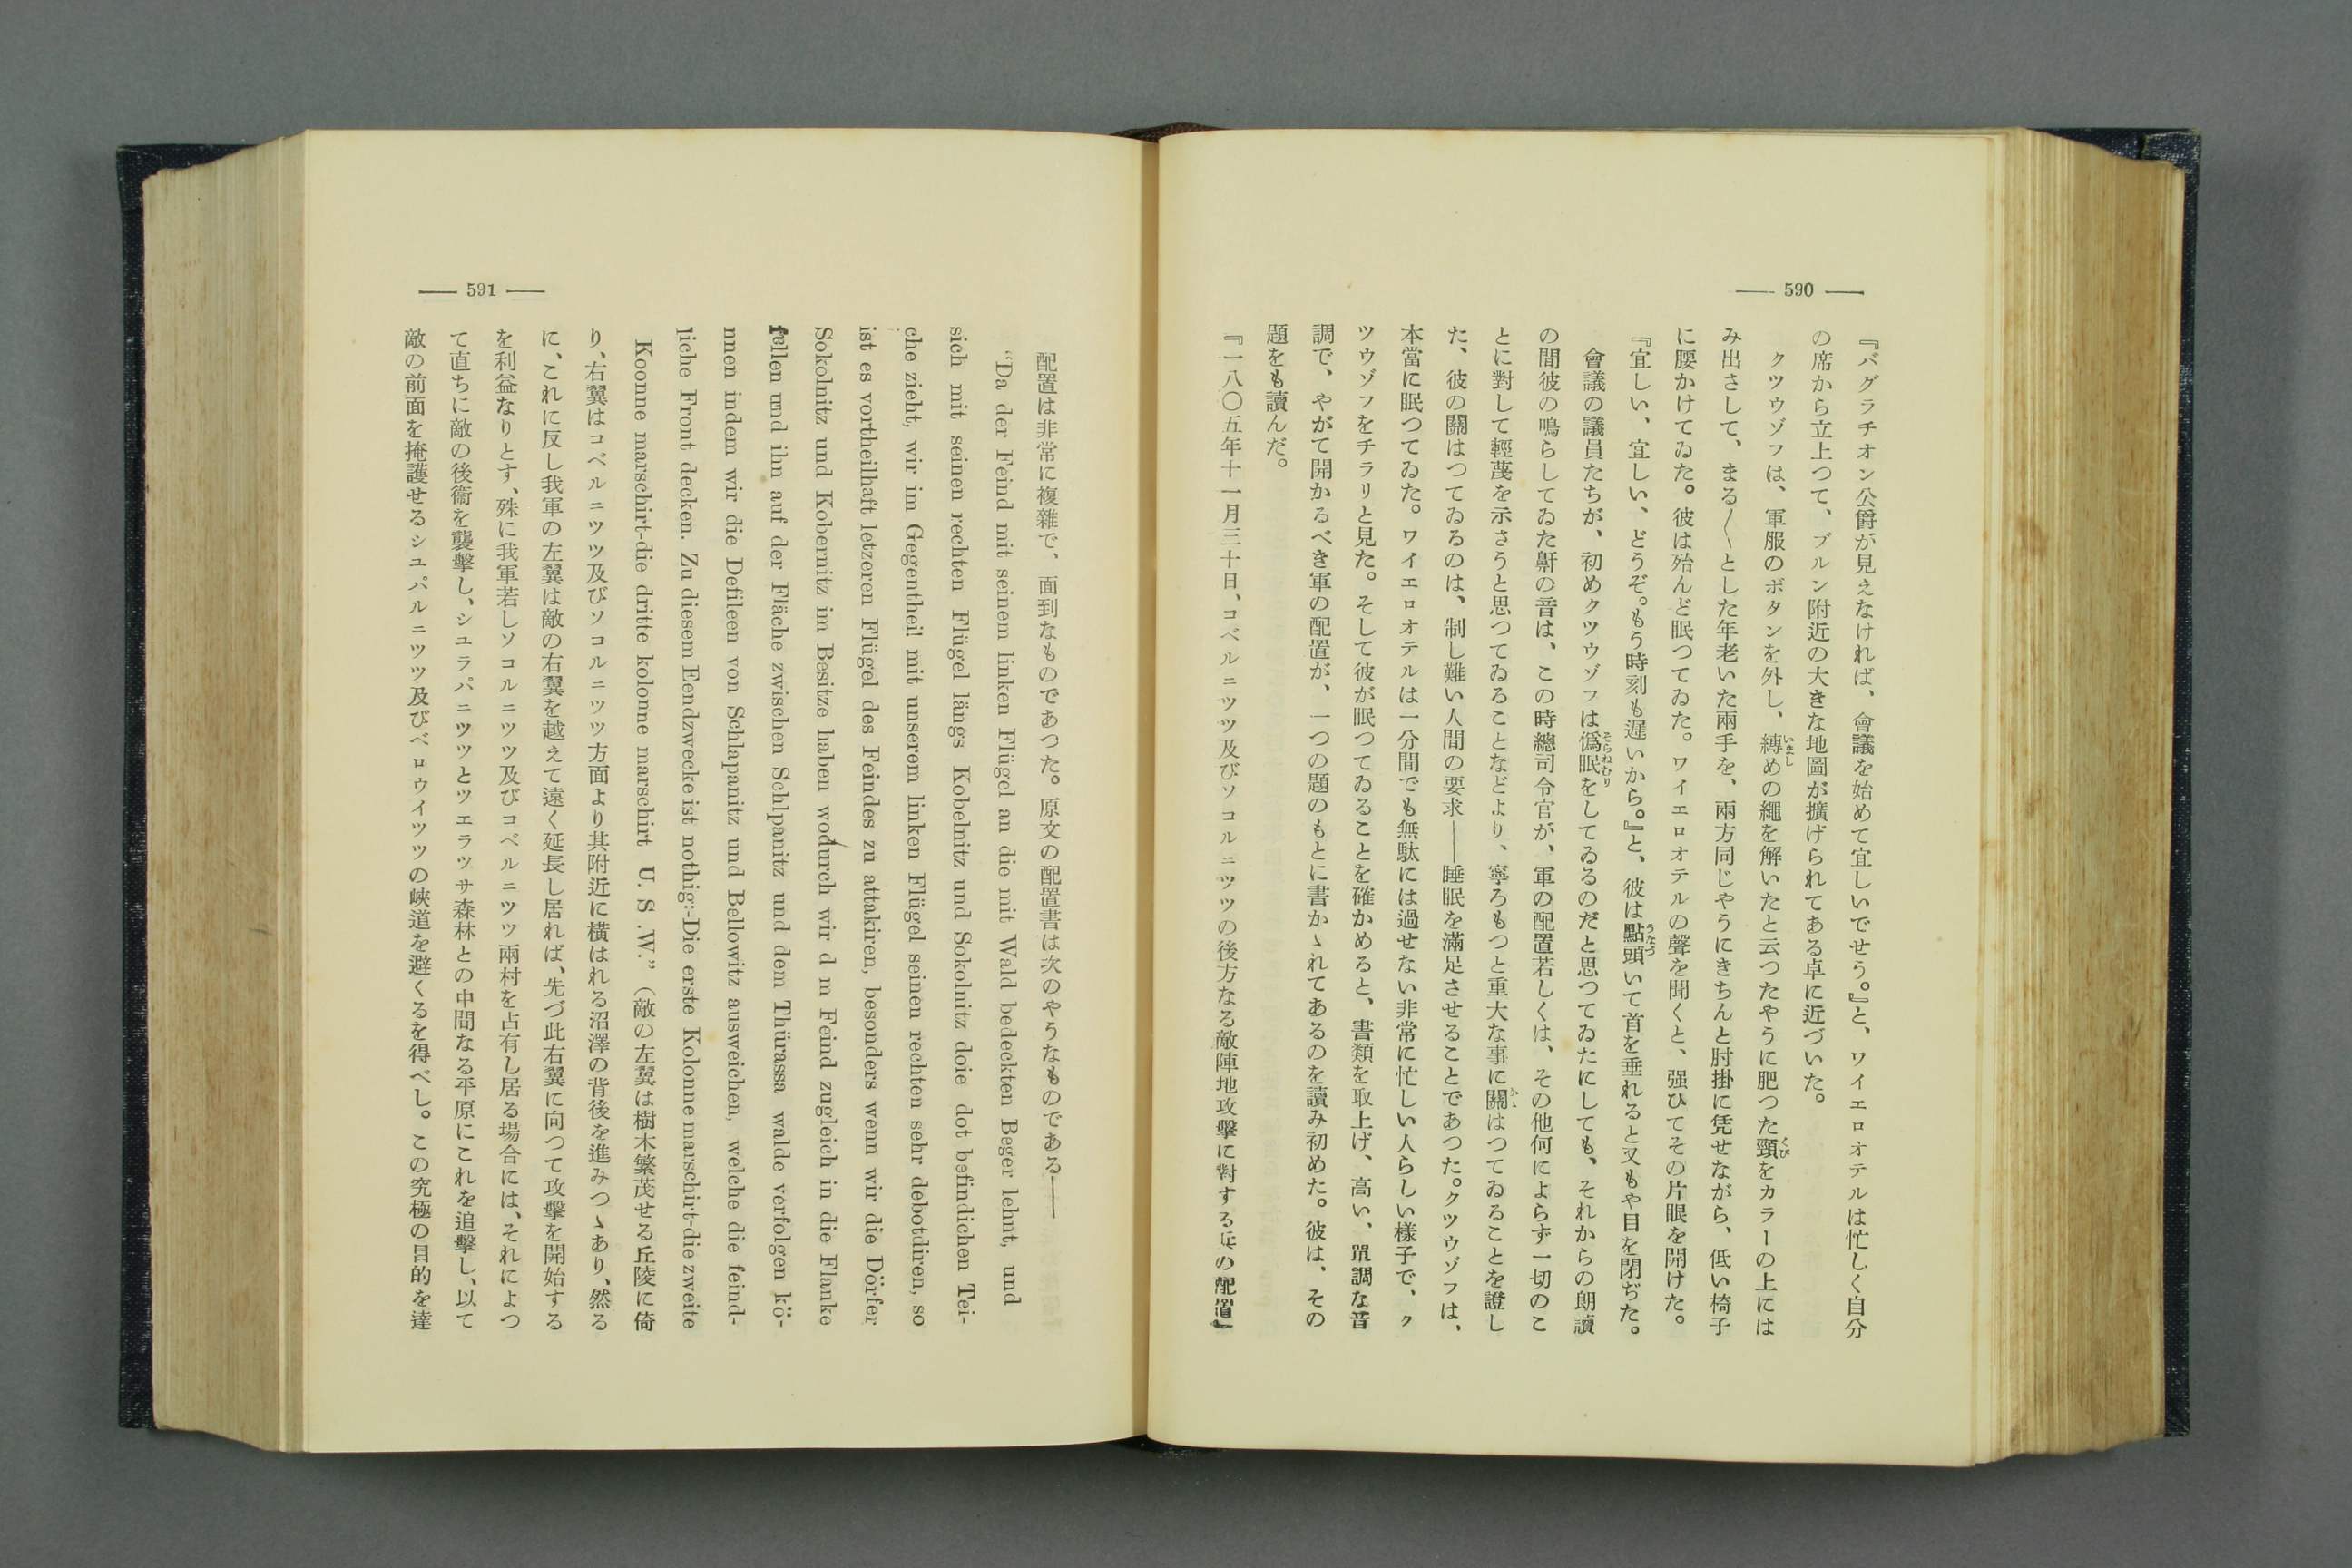 — 590 —
『バグラチオン公爵が見えなければ、會議を始めて宜しいでせう。』と、ワイエロオテルは忙しく自分
の席から立上つて、ブルン附近の大きな地圖が擴げられてある卓に近づいた。
クツウゾフは、軍服のボタンを外し、縛めの繩を解いたと云つたやうに肥つた頸をカラーの上には
み出さして、まる〱とした年老いた兩手を、兩方同じやうにきちんと肘掛に凭せながら、低い椅子
に腰かけてゐた。彼は殆んど眠つてゐた。ワイエロオテルの聲を聞くと、强ひてその片眼を開けた。
『宜しい、宜しい、どうぞ。もう時刻も遲いから。』と、彼は點頭いて首を垂れると又もや目を閉ぢた。
會議の議員たちが、初めクツウゾフは僞眠をしてゐるのだと思つてゐたにしても、それからの朗讀
の間彼の鳴らしてゐた鼾の音は、この時總司令官が、軍の配置若しくは、その他何によらず一切のこ
とに對して輕蔑を示さうと思つてゐることなどより、寧ろもつと重大な事に關はつてゐることを證し
た、彼の關はつてゐるのは、制し難い人間の要求——睡眠を滿足させることであつた。クツウゾフは、
本當に眠つてゐた。ワイエロオテルは一分間でも無駄には過せない非常に忙しい人らしい樣子で、ク
ツウゾフをチラリと見た。そして彼が眠つてゐることを確かめると、書類を取上げ、高い、單調な音
調で、やがて開かるべき軍の配置が、一つの題のもとに書かゝれてあるのを讀み初めた。彼は、その
題をも讀んだ。
『一八〇五年十一月三十日、コベルニツツ及びソコルニツツの後方なる敵陣地攻擊に對する兵の配置』
— 591 —
配置は非常に複雜で、面到なものであつた。原文の配置書は次のやうなものである——
“Da der Feind mit seinem linken Flügel an die mit Wald bedeckten Beger lehnt, und
sich mit seinen rechten Flügel längs Kobelnitz und Sokolnitz doie dot befindichen Tei-
che zieht, wir im Gegentheil mit unserem linken Flügel seinen rechten sehr debotdiren, so
ist es vortheilhaft letzeren Flügel des Feindes zu attakiren, besonders wenn wir die Dörfer
Sokolnitz und Kobernitz im Besitze haben wodurch wir d m Feind zugleich in die Flanke
fellen und ihn auf der Fläche zwischen Schlpanitz und dem Thürassa walde verfolgen kö-
nnen indem wir die Defileen von Schlapanitz und Bellowitz ausweichen, welche die feind-
liche Front decken. Zu diesem Eendzwecke ist nothig:-Die erste Kolonne marschirt-die zweite
Koonne marschirt-die dritte kolonne marschirt U. S .W.” (敵の左翼は樹木繁茂せる丘陵に倚
り、右翼はコベルニツツ及びソコルニツツ方面より其附近に橫はれる沼澤の背後を進みつゝあり、然る
に、これに反し我軍の左翼は敵の右翼を越えて遠く延長し居れば、先づ此右翼に向つて攻擊を開始する
を利益なりとす、殊に我軍若しソコルニツツ及びコベルニツツ兩村を占有し居る場合には、それによつ
て直ちに敵の後衞を襲擊し、シユラパニツツとツエラツサ森林との中間なる平原にこれを追擊し、以て
敵の前面を掩護せるシユパルニツツ及びベロウイツツの峽道を避くるを得べし。この究極の目的を達